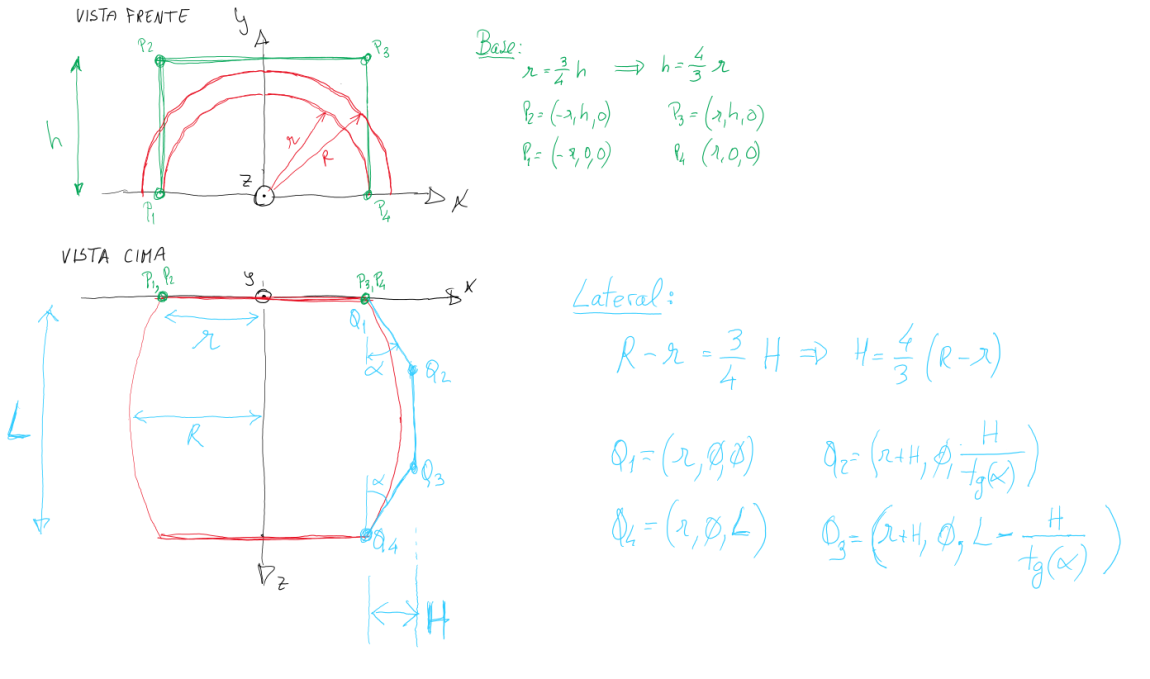 VISTA FRENTE
y
P2
P3
h
r
R
Z
P1
P4
X
Base:
r = 3/4 h ⇒ h = 4/3 r
P2 = (-r, h, 0) P3 = (r, h, 0)
P1 = (-r, 0, 0) P4 (r, 0, 0)
VISTA CIMA
P1, P2
y
P3, P4
X
r
Q1
α
Q2
L
R
α
Q3
Q4
Z
H
Lateral:
R - r = 3/4 H ⇒ H = 4/3 (R - r)
Q1 = (r, ∅, ∅) Q2 = (r+H, ∅, H/tg(α))
Q4 = (r, ∅, L) Q3 = (r+H, ∅, L - H/tg(α))